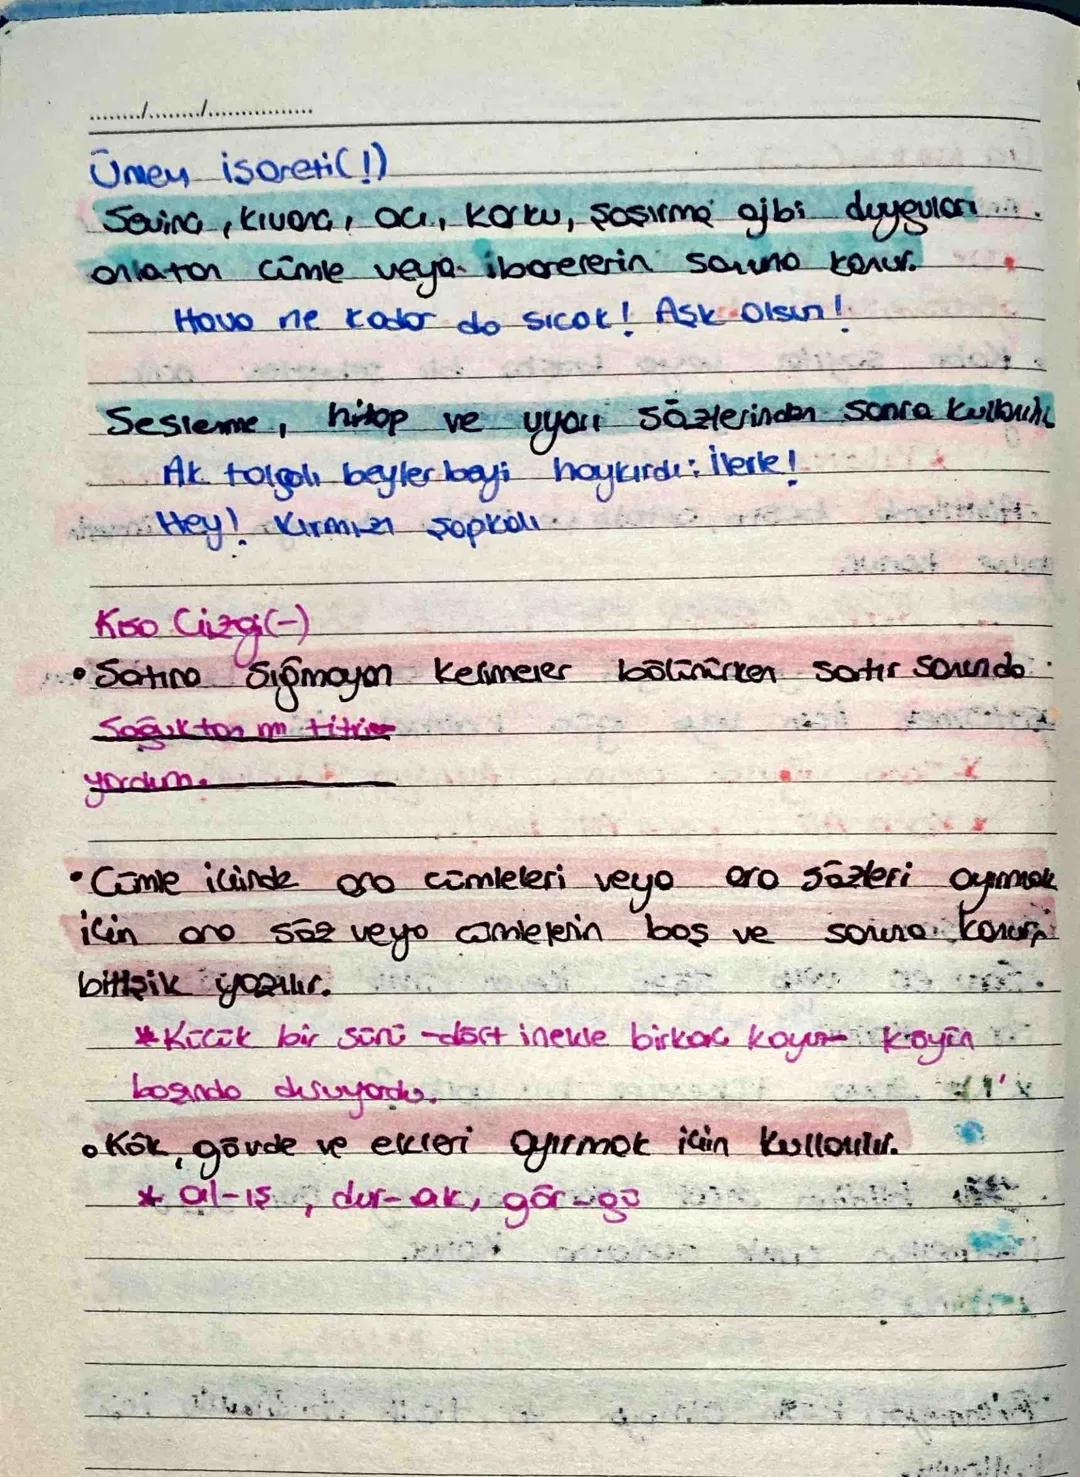 ......../......../...............
Ünlem işareti(!)
Sevinç, kıvanç, acı, korku, şaşırma gibi duyguları
anlatan cümle veya ibarelerin sonuna konur.
Hava ne kadar da sıcak! Aşk olsun!
Seslenme, hitap ve uyarı sözlerinden sonra kullanılır
Ak tolgalı beylerbeyi haykırdı: İlerle!
Hey! Kırmızı şapkalı
Kısa Çizgi(-)
• Satıra sığmayan kelimeler bölünürken satır sonunda
Soğuktan mı titri-
yordum.
• Cümle içinde ara cümleleri veya ara sözleri ayırmak
için ara söz veya cümlelerin baş ve sonuna konur,
bitişik yazılır.
* Küçük bir sürü -dört inekle birkaç koyun- köyün
başında duruyordu.
• Kök, gövde ve ekleri ayırmak için kullanılır.
* al-ış, dur-ak, gör-gü